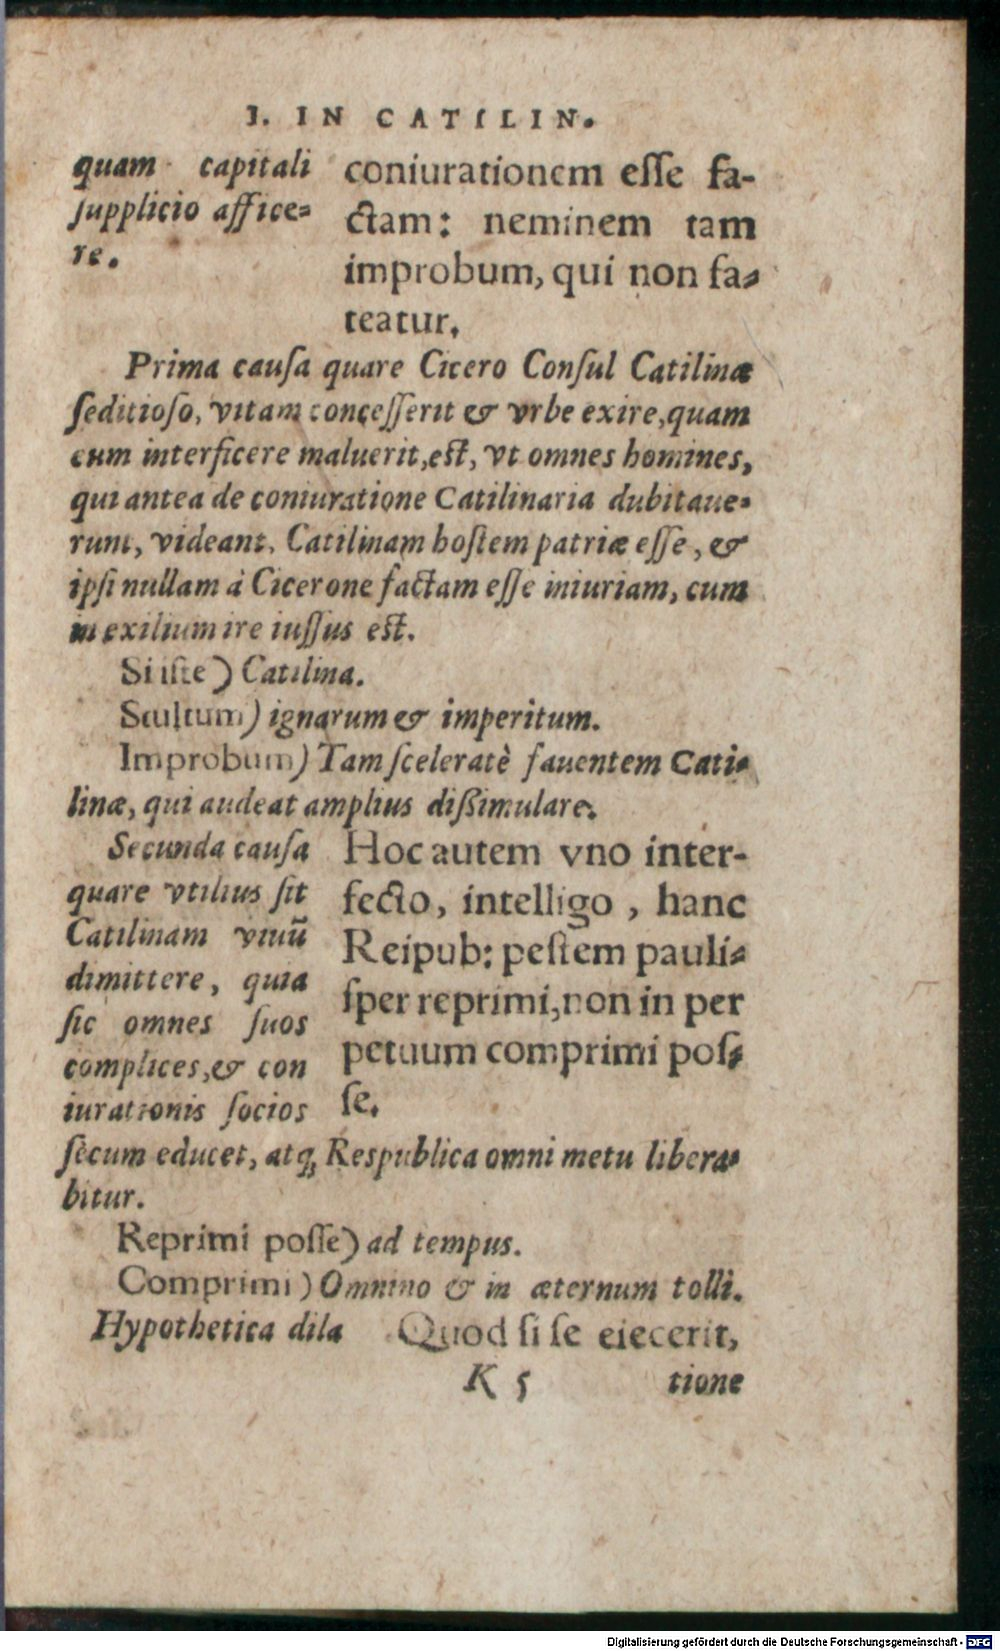 I. IN CATILIN.
quam capitali
supplicio affice-
re.
coniurationem esse fa-
ctam: neminem tam
improbum, qui non fa-
teatur.
Prima causa quare Cicero Consul Catilinæ
seditioso, vitam concesserit & vrbe exire, quam
eum interficere maluerit, est, vt omnes homines,
qui antea de coniuratione Catilinaria dubitaue-
runt, videant, Catilinam hostem patriæ esse, &
ipsi nullam à Cicerone factam esse iniuriam, cum
in exilium ire iussus est.
Si iste) Catilina.
Stultum) ignarum & imperitum.
Improbum) Tam sceleratè fauentem Cati-
linæ, qui audeat amplius dissimulare.
Secunda causa
quare vtilius sit
Catilinam viuū
dimittere, quia
sic omnes suos
complices, & con
iurationis socios
Hoc autem vno inter-
fecto, intelligo, hanc
Reipub: pestem pauli-
sper reprimi, non in per
petuum comprimi pos-
se.
secum educet, atq; Respublica omni metu libera-
bitur.
Reprimi posse) ad tempus.
Comprimi) Omnino & in æternum tolli.
Hypothetica dila
Quod si se eiecerit,
K 5
tione
Digitalisierung gefördert durch die Deutsche Forschungsgemeinschaft - DFG